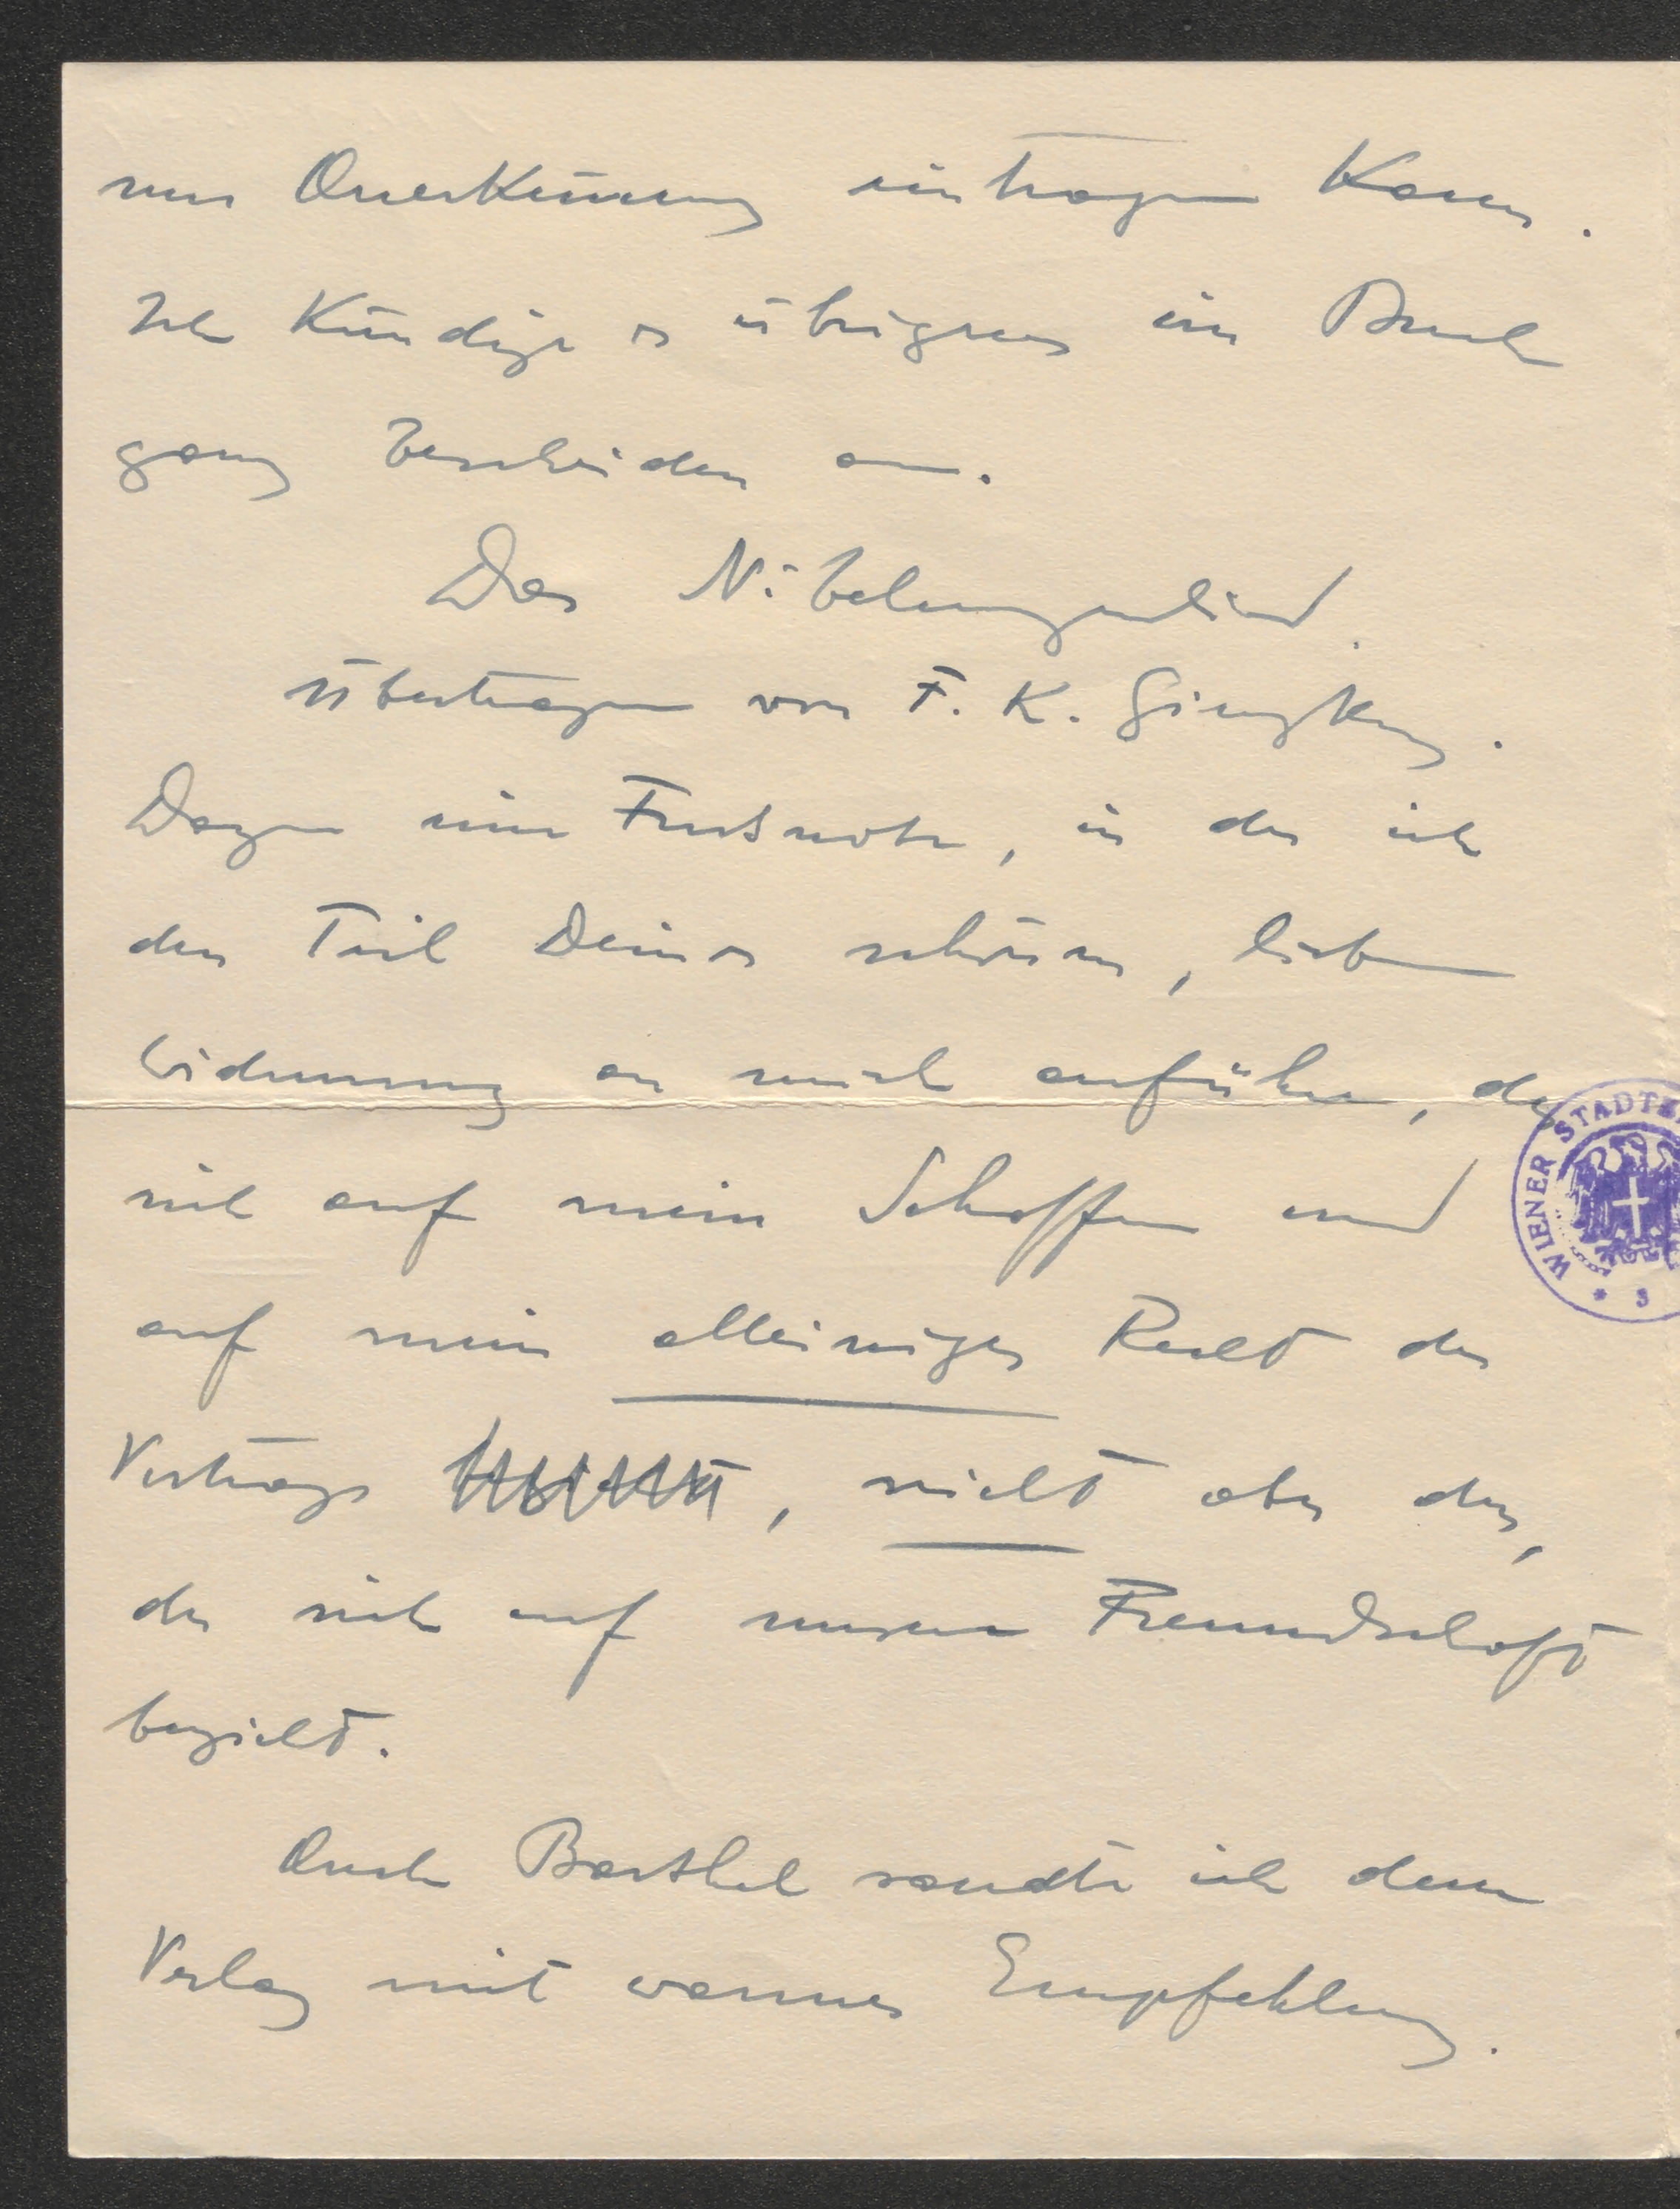 nur Anerkennung eintragen kann.
Ich kündige es übrigens im Buch
ganz bescheiden an.
Das Nibelungenlied.
Übertragen von F. K. Ginzkey.
Dazu eine Fussnote, in der ich
den Teil Deiner schönen, lieben
Widmung an mich anführe, der
sich auf mein Schaffen und
auf mein alleiniges Recht des
Vortrags, nicht aber den,
der sich auf unsere Freundschaft
bezieht.
Auch Barthel sandte ich dem
Verlag mit warmer Empfehlung.
WIENER STADTB